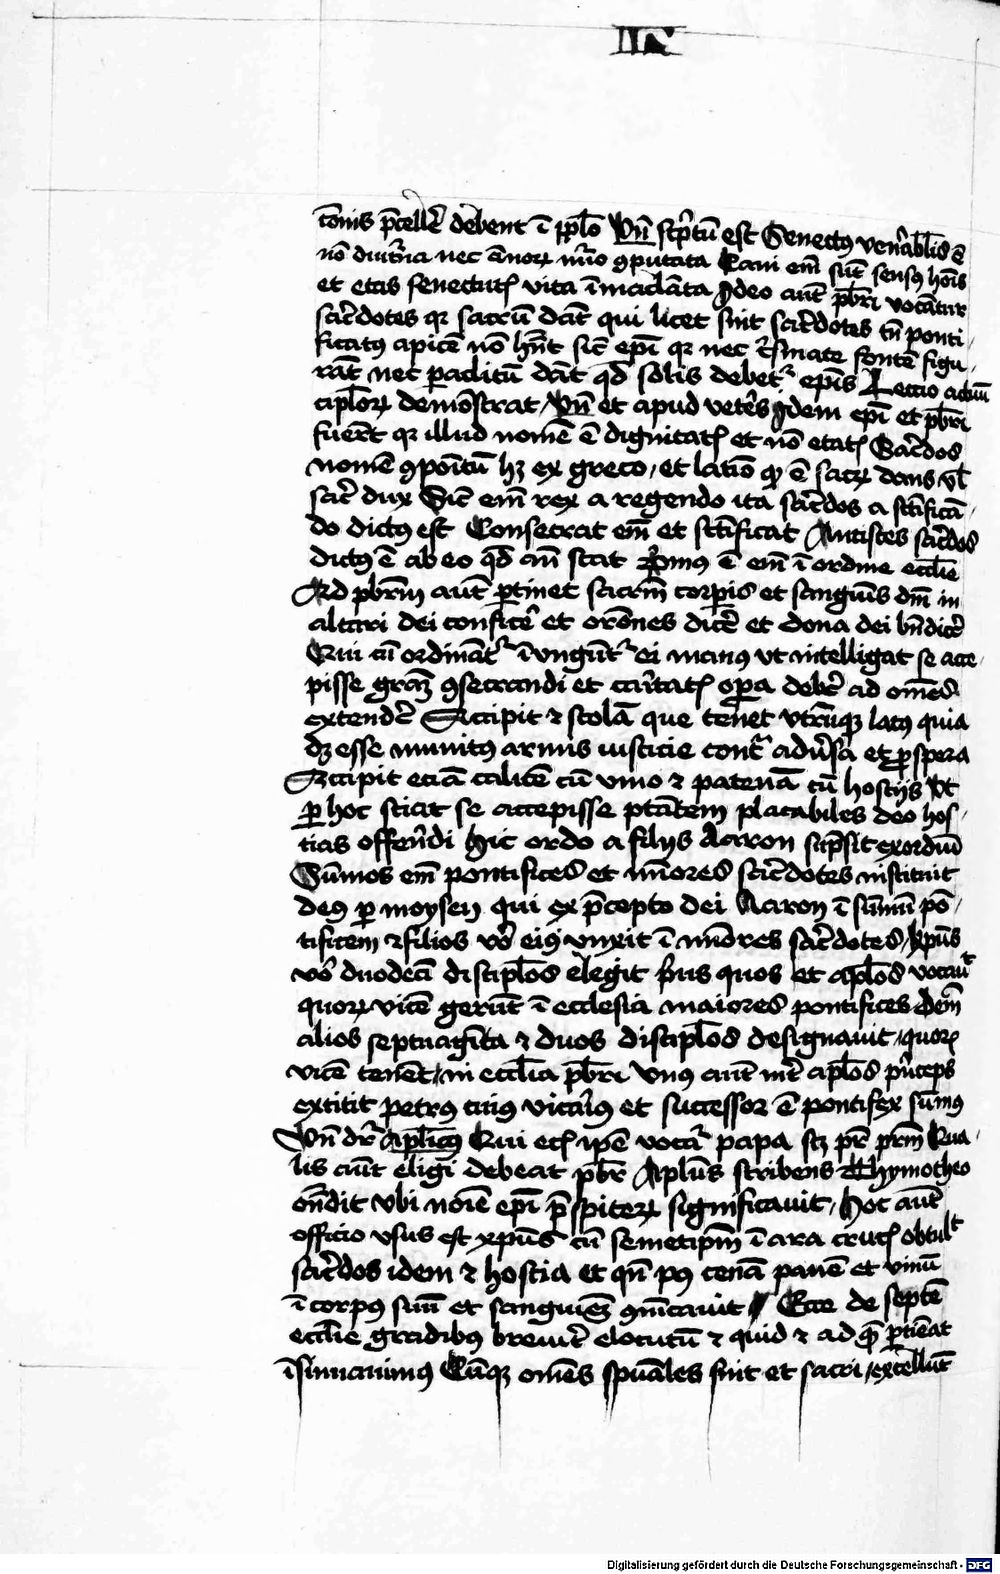 IIX
cōnis p̄cellē debent ī pp̄lo Vn̄ scp̄tū est Senectꝰ ven̄abilis ē
nō diut̄na nec ānoꝝ nūo ꝯputata Cani em̄ sūt sensꝰ hoīs
et etas senectutꝭ vita īmaclāta Ideo aut̄ pb̄ri vocātur
sac̄dotes qꝛ sacrū dāt qui licet sint sac̄dotes tn̄ ponti
ficatꝰ apicē nō hn̄t sic̄ epī qꝛ nec c̄smate frontē figu
rāt nec paclitū dāt qd̄ solis debet᷑ epīs Lectio actuū
apl̄oꝝ demōstrat / Vn̄ et apud vetēs Idem epī et pb̄ri
fuer̄t qꝛ illud nomē ē dignitatꝭ et nō etatꝭ Sac̄dos
nomē ꝯpoītū hꝫ ex greco / et latīo qꝛ ē sacꝝ dans vl̄
sac̄ dux Sic̄ em̄ rex a regendo ita sac̄dos a sc̄tificā
do dictꝰ est Consecrat em̄ et sc̄tificat Antistes sac̄dos
dictꝰ ē ab eo qd̄ an̄ stat Primꝰ ē em̄ ī ordine eccl̄ie
Ad pb̄rm aut̄ ꝑtinet sacr̄m corꝑis et sanguīs dn̄i in
altari dei conficē et orōnes dicē et dona dei bn̄dicē
Qui cū ordināt᷑ īungūt᷑ ei manꝰ vt intelligat se acce
pisse grāꝫ ꝯsecrandi et car̄tatꝭ oꝑa debē ad om̄es
extendē Accipit ⁊ stolā que tenet vtrūqꝫ latꝰ quia
dꝫ esse munitꝰ armis iusticie cont᷑ adūsa et ꝓspera
Accipit eciā calicē cū vino ⁊ patenā cū hostijs Vt
ꝑ hoc sciat se accepisse ptātem placabiles deo hos
tias offer̄ndi Hic ordo a filijs Aaron sup̄sit exordiū
Sūmos em̄ pontifices et mīores sac̄dotes instituit
deꝰ ꝑ moysen qui ex p̄cepto dei Aaron ī sūmū pō
tificem ⁊ filios vō eiꝰ vnxit ī mīores sac̄dotes / xp̄us
vō duodecī discipl̄os elegit pͥus quos et apl̄os vocauͭ
quoꝝ vicē gerūt ī ecclesia maiores pontifices Dem̄
alios septuagīta ⁊ duos discipl̄os designauit / quoꝝ
vicē tenēt / in eccl̄ia pb̄ri Vnus aut̄ int̄ apl̄os pͥnceps
extitit petrꝰ cuiꝰ vicāiꝰ et successor ē pontifex sūmꝰ
Vn̄ dr̄ apl̄icꝰ Qui ecꝭ ip̄e vocat᷑ papa scꝫ pr̄ prm̄ Qua
lis aut̄ eligi debeat pb̄r Apl̄us scribens Thymotheo
ōn̄dit vbi noīe epī p̄spiteꝝ significauit / hoc aut̄
officio vsus est xp̄us cū semetip̄m ī ara crucꝭ obtulͭ
sac̄dos idem ⁊ hostia et qn̄ pꝰ cenā panē et vinū
ī corpꝰ suū et sanguinē ꝯmutauit / Ecce de septē
eccl̄ie gradibꝰ breuit̄ elocutū ⁊ quid ⁊ ad qm̄ ꝑtiēat
īsinuauimꝰ Cūqꝫ om̄es spūales sint et sacri / excellūt
Digitalisierung gefördert durch die Deutsche Forschungsgemeinschaft - DFG